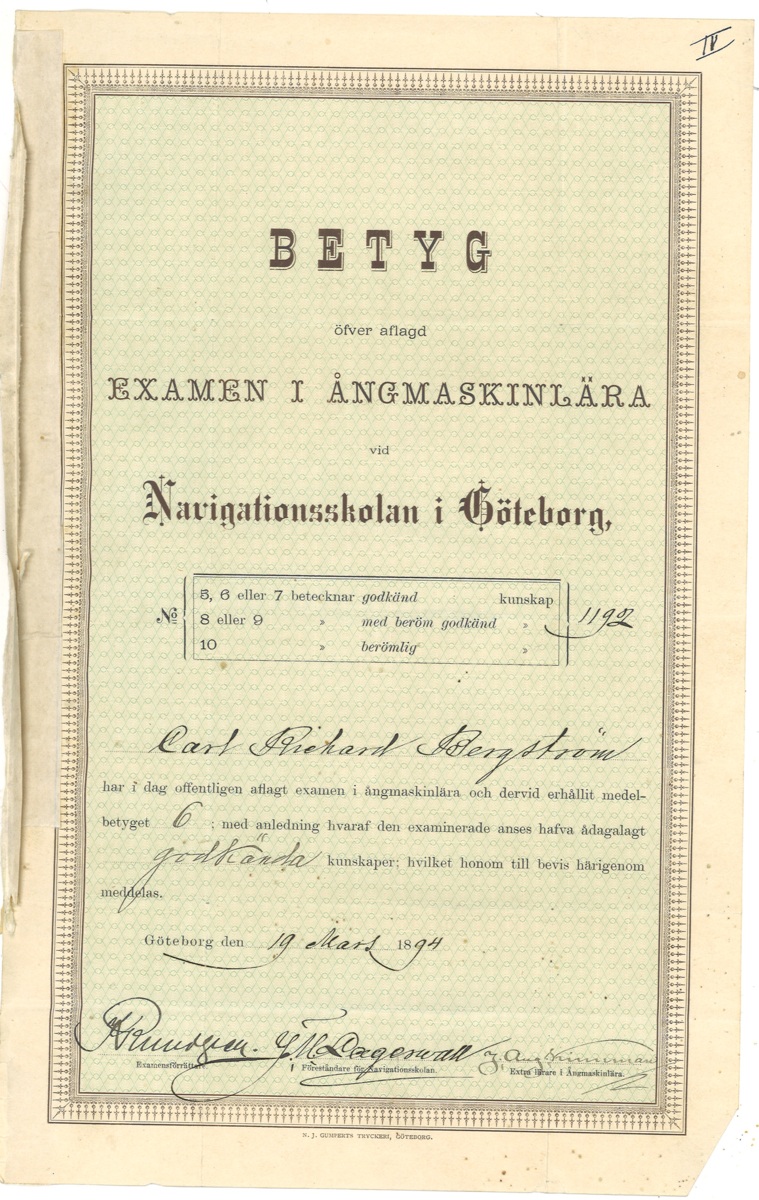 IV
BETYG
öfver aflagd
EXAMEN I ÅNGMASKINLÄRA
vid
Navigationsskolan i Göteborg,
5, 6 eller 7 betecknar godkänd kunskap
No 8 eller 9 » med beröm godkänd » 1192
10 » berömlig »
Carl Richard Bergström
har i dag offentligen aflagt examen i ångmaskinlära och dervid erhållit medel-
betyget 6 ; med anledning hvaraf den examinerade anses hafva ådagalagt
godkända kunskaper; hvilket honom till bevis härigenom
meddelas.
Göteborg den 19 Mars 1894
Rundgren. Lagerwall
Examensförrättare. Föreståndare för Navigationsskolan. Extra lärare i Ångmaskinlära.
N. J. GUMPERTS TRYCKERI, GÖTEBORG.